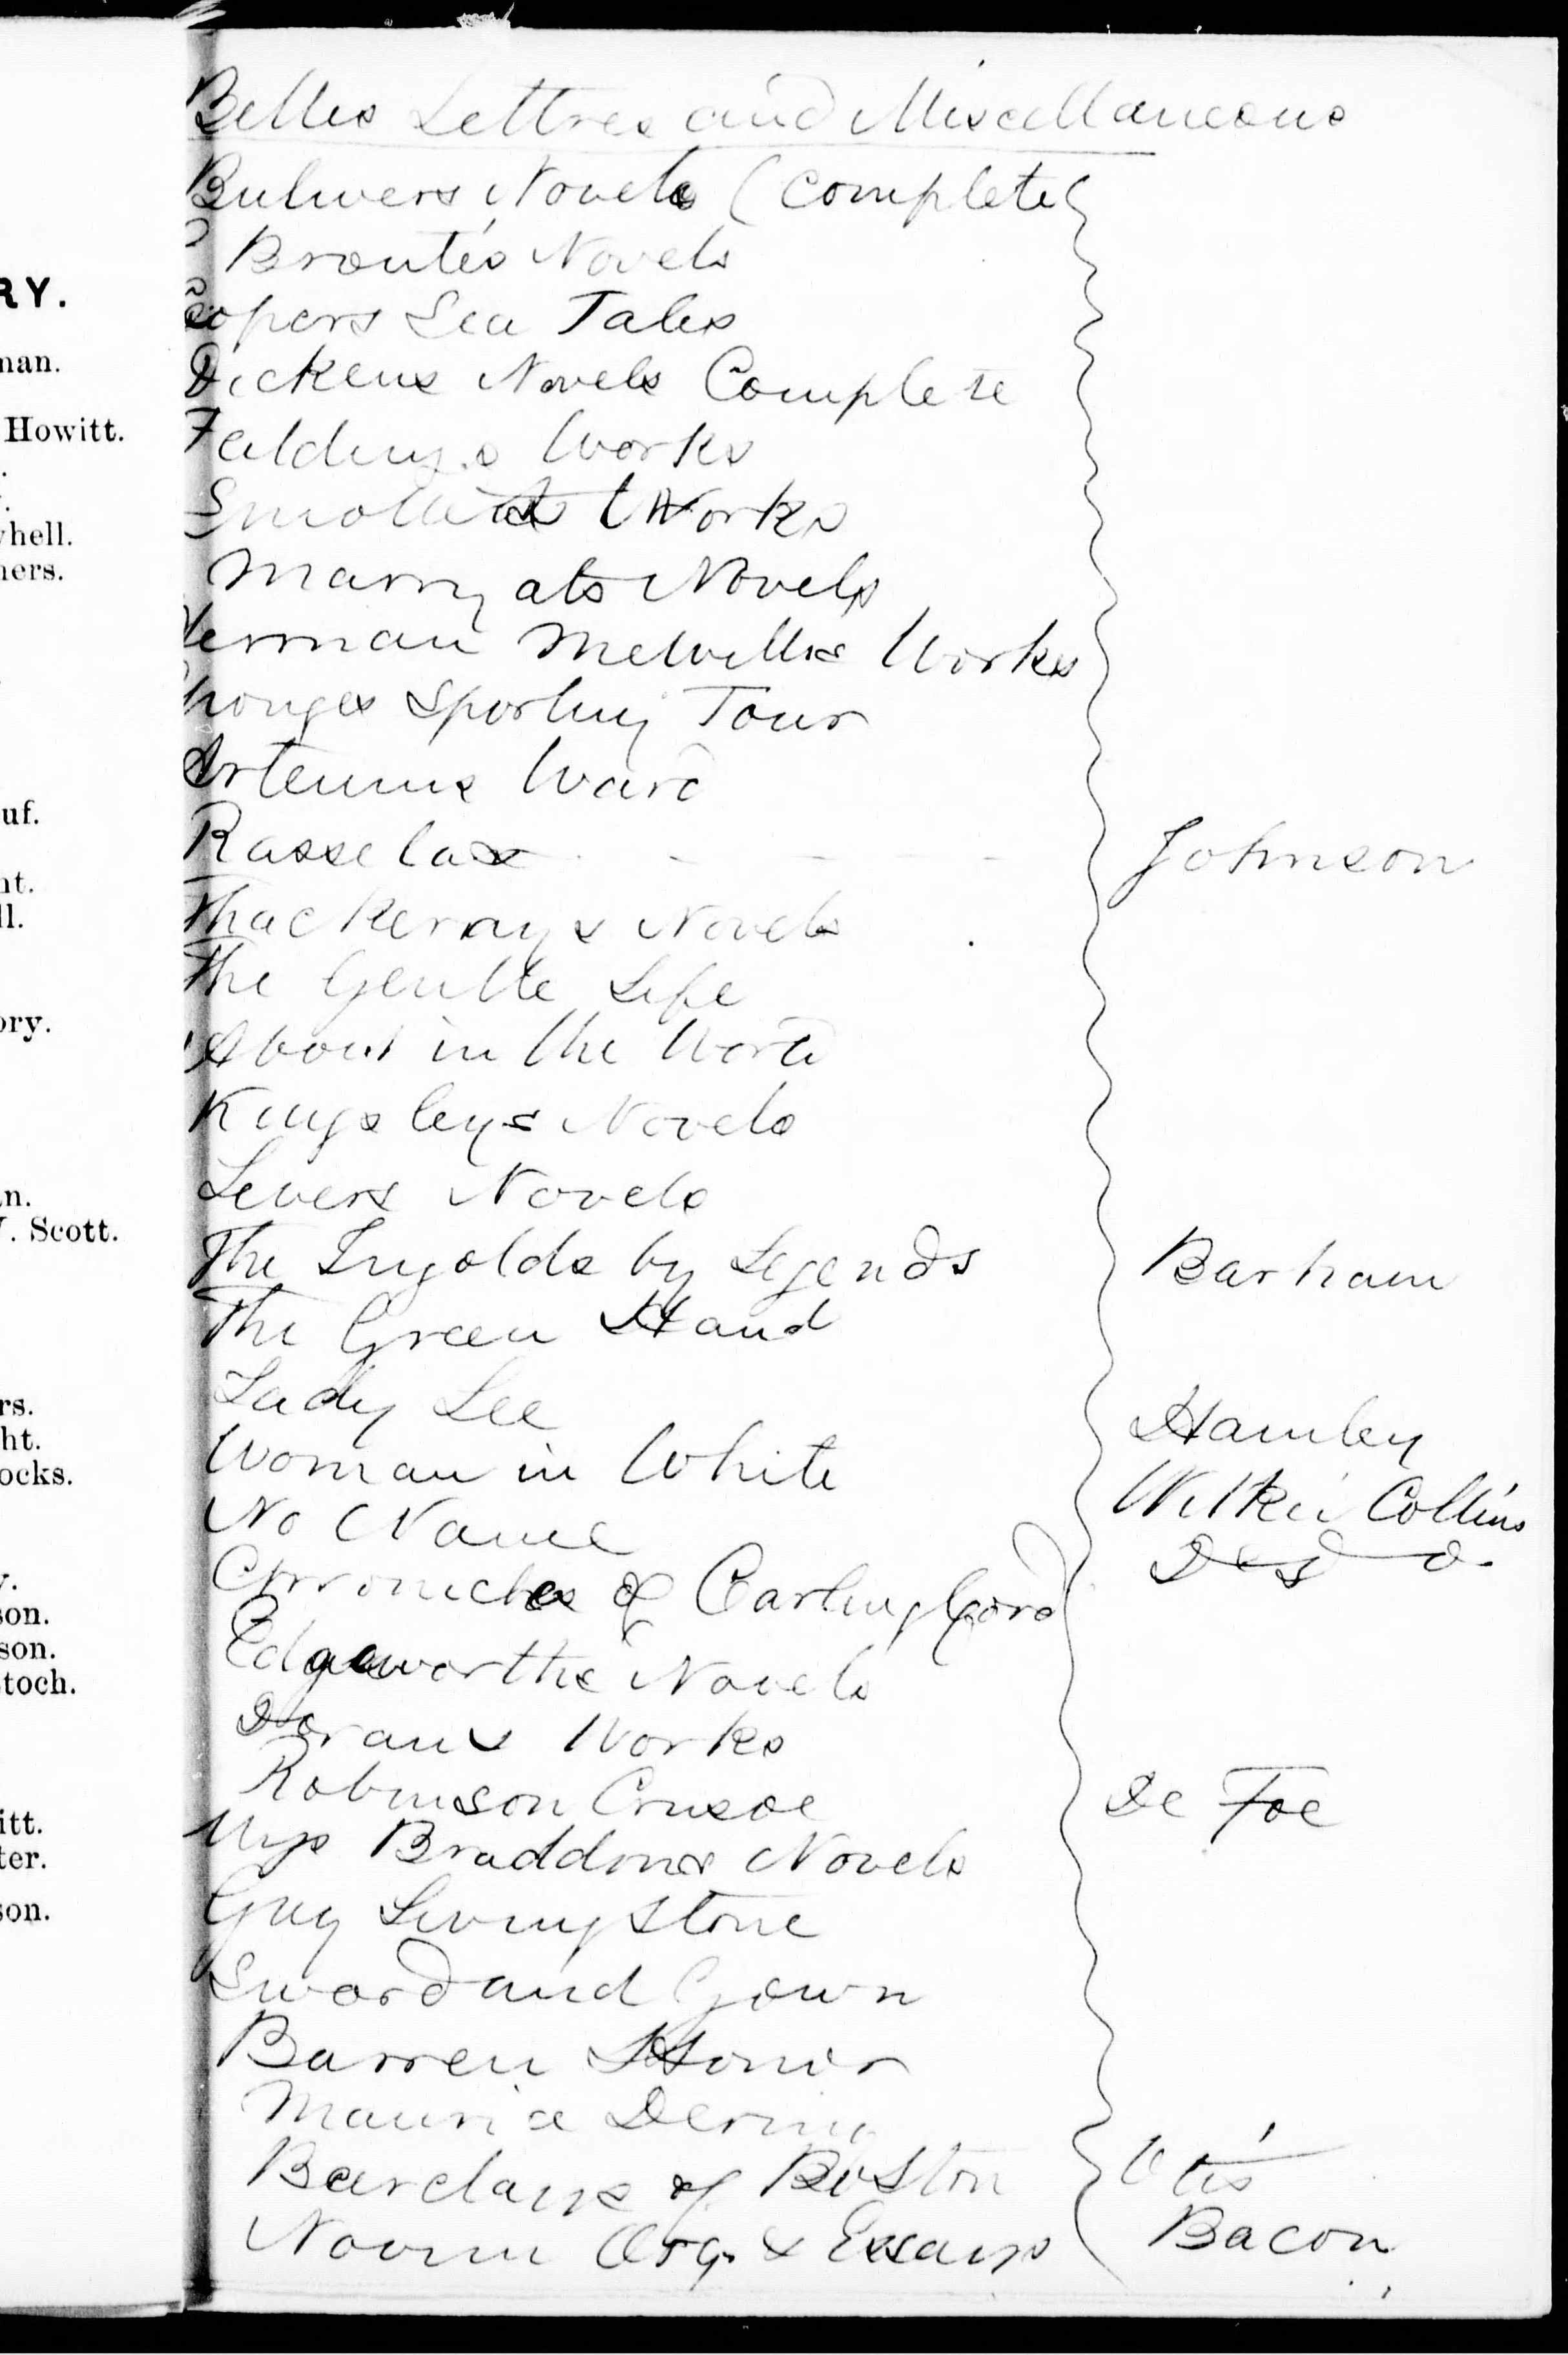 RY.
man.
Howitt.
whell.
hers.
uf.
nt.
ll.
ory.
n.
. Scott.
rs.
ht.
ocks.
y.
son.
son.
toch.
itt.
ter.
son.
Belles Lettres and Miscellaneous
Bulwers Novels (Complete
Bronte's Novels
Coopers Sea Tales
Dickens Novels Complete
Feildings Works
Smolletts Works
Marryats Novels
Herman Melvilles Works
Sponges Sporting Tour
Artemus Ward
Rasselas - - - Johnson
Thackerays Novels
The Gentle Life
About in the World
Kingsleys Novels
Levers Novels
The Ingoldsby Legends Barham
The Green Hand
Lady Lee Hamley
Woman in White Wilkie Collins
No Name Do
Chronicles of Carlingford
Edgeworths Novels
Dorans Works
Robinson Crusoe De Foe
Miss Braddons Novels
Guy Livingstone
Sword and Gown
Barren Honor
Maurice Dering
Barclays of Boston Otis
Novum Org. & Essays Bacon